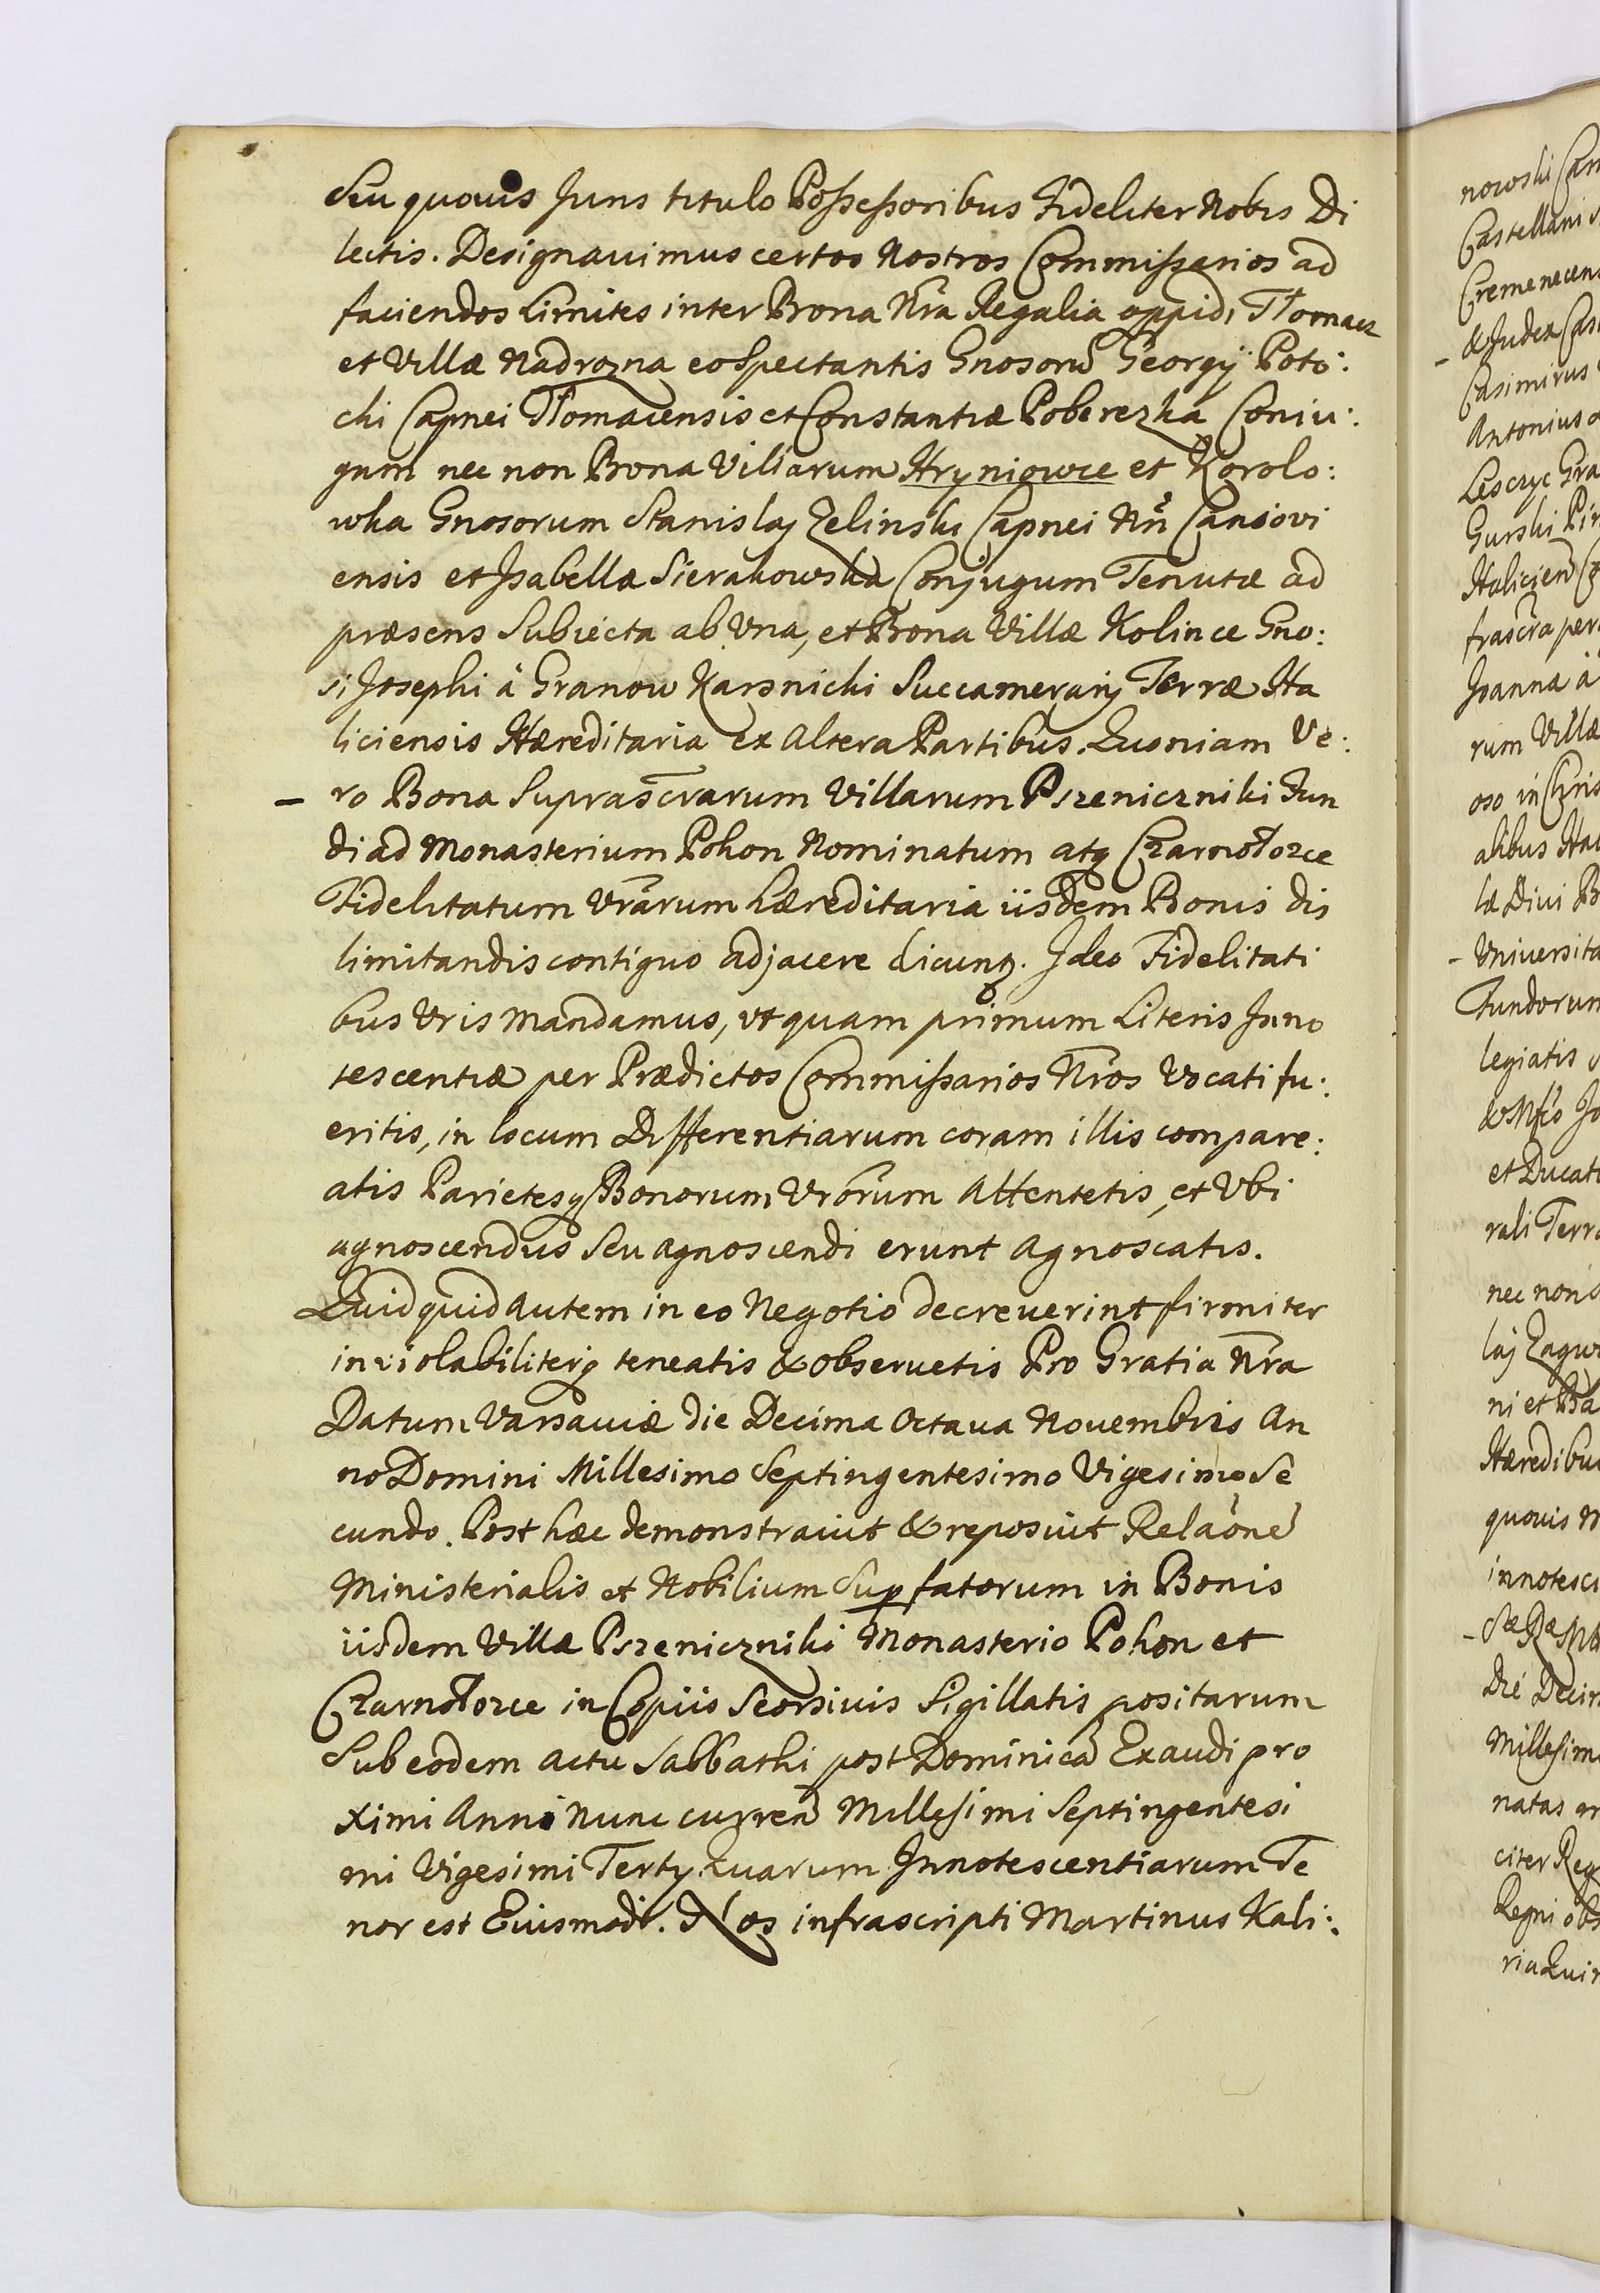 Seu quovis Juris titulo Possessoribus Fideliter Nobis Di
lectis. Designavimus certos Nostros Commissarios ad
faciendos Limites inter Bona Nr̃a Regalia oppidi Tłomacz
et Villæ Nadrozna eo Spectantis Gnosorũ Georgÿ Poto:
cki Capnei Tłomacensis et Constantiæ Poberezka Coniu:
gum nec non Bona Villarum Hryniowce et Korolo:
wka Gnosorum Stanislaj Zelinski Capnei Nr̃i Caniovi
ensis et Isabellæ Sierakowska Conjugum Tenutæ ad
præsens Subiecta ab Vna, et Bona Villæ Kolince Gno:
si Josephi à Granow Karsnicki Succamerarij Terræ Ha
liciensis Hæreditaria ex Altera Partibus. Quoniam Ve:
– ro Bona Suprascr̃arum Villarum Pszeniczniki Fun
di ad Monasterium Pohon Nominatum atq Czarnołozce
Fidelitatum Vr̃arum hæreditaria iisdem Bonis dis
limitandis contiguo adjacere dicunt˜. Ideo Fidelitati
bus Vris Mandamus, vt quam primum Literis Inno
tescentiæ per Prædictos Commissarios Nr̃os Vocati fu:
eritis, in locum Differentiarum coram illis compare:
atis Parietesq Bonorum Vrõrum Attentetis, et Vbi
agnoscendus Seu agnoscendi erunt Agnoscatis.
Quidquid Autem in eo Negotio decreverint firmiter
inviolabiliterq teneatis & observetis Pro Gratia Nr̃a
Datum Varsaviæ die Decima Octava Novembris An
no Domini Millesimo Septingentesimo Vigesimo Se
cundo. Post hæc demonstravit & reposuit Relaõnẽ
Ministerialis et Nobilium Supfatorum in Bonis
iisdem Villæ Pszeniczniki Monasterio Pohon et
Czarnołozce in Copiis Seorsivis Sigillatis positarum
Sub eodem actu Sabbathi post Dominicã Exaudi pro
ximi Anni Nunc curreñ Millesimi Septingentesi
mi Vigesimi Tertij Quarum Innotescentiarum Te
nor est Eiusmodi. Nos infrascripti Martinus Kali:
nowski
Castellani
& Judex
Casimirus
Antonius
Gurski
Joanna à
rum Villæ
– Universita
Fundorum
legiatis
et Ducat
rali Terr
nec non
ni et
Hæredibus
quovis
innotesc
Die Decim
Millesim
natas
citer Reg
Regni